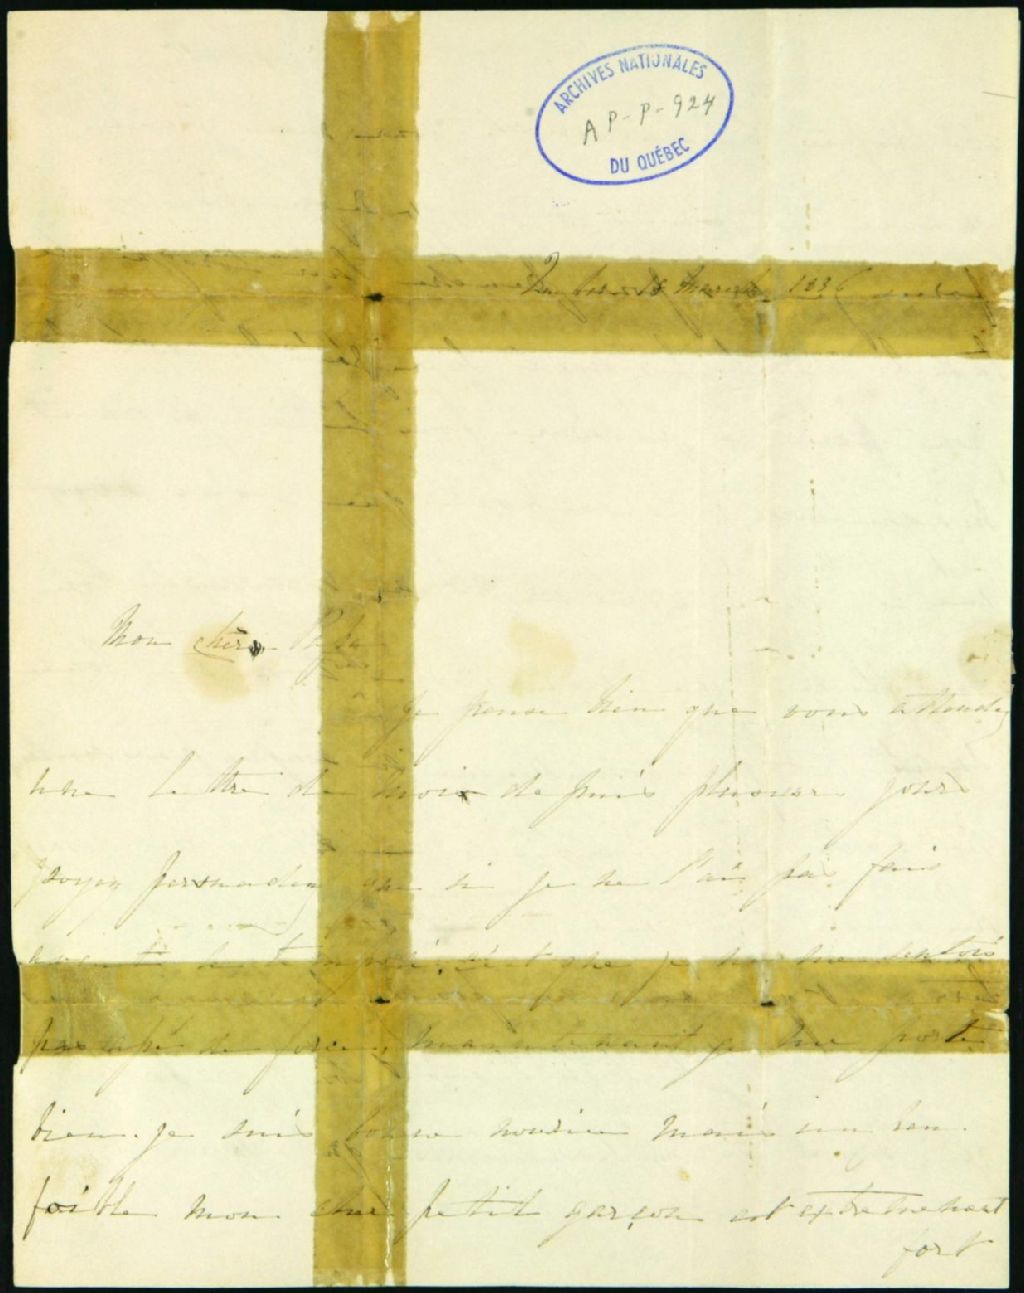 ARCHIVES NATIONALES
AP-P-924
DU QUÉBEC
18 1836
Mon cher Papa
Je pense bien que vous attendez
une lettre de moi depuis plusieur jours
soyez persuadez que si je ne l'ai pas fais
c'est que je ne me sentois
pas assé de force, maintenant je me porte
bien. je suis bonne nourice mais un peu
foible mon cher petit garçon est extremement
fort